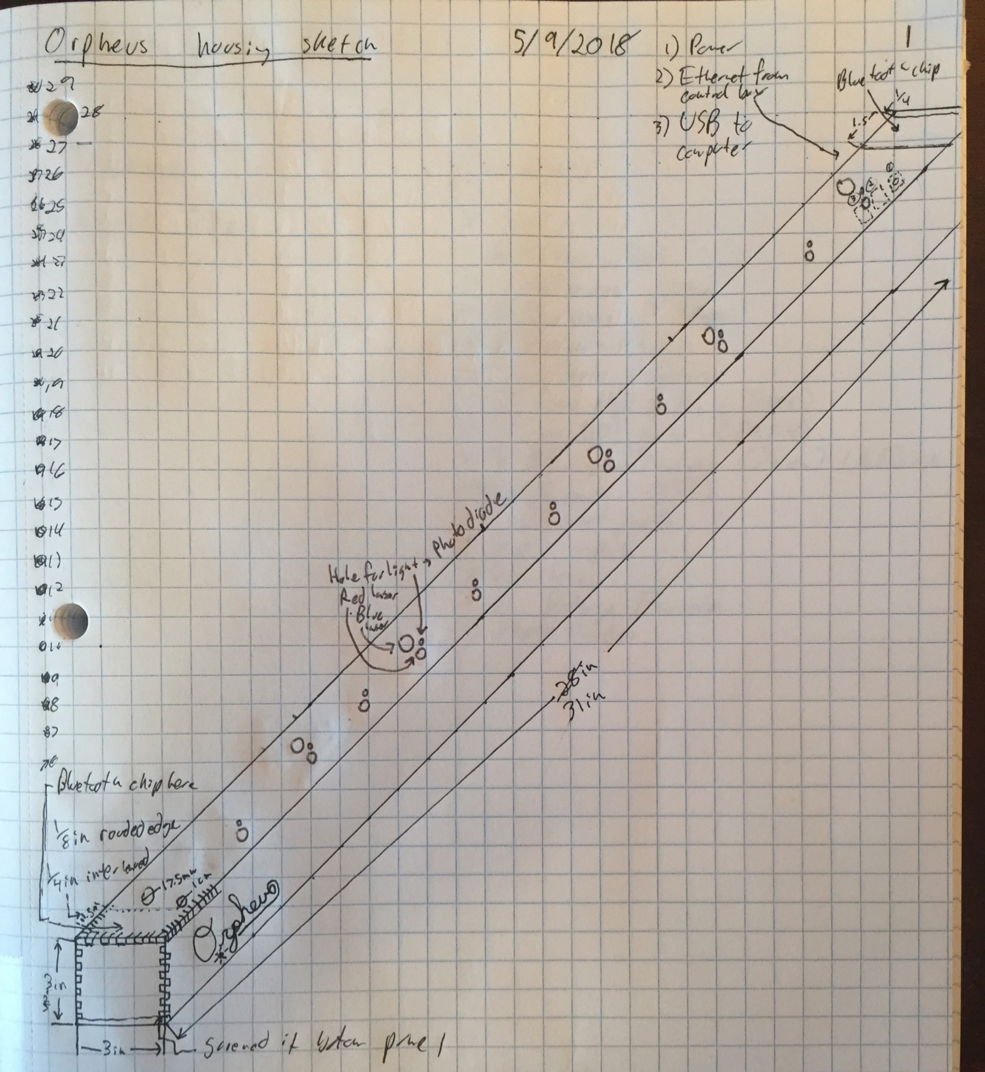 Orpheus housing sketch
5/9/2018
1
1) Power
2) Ethernet from
control box
3) USB to
computer
Bluetooth chip
1/4
1.5"
29
28
27
26
25
24
23
22
21
20
19
18
17
16
15
14
13
12
11
10
9
8
7
6
Hole for light → photodiode
Red laser
Blue
laser
28in
31in
Bluetooth chip here
1/8in rounded edge
1/4in
17.5mm
1cm
Orpheus
3in
3in
Screwed in bottom panel